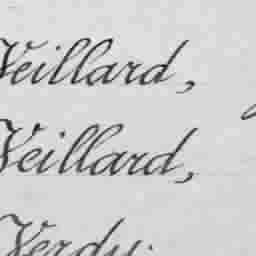 Veillard,
Veillard,
Verdy.